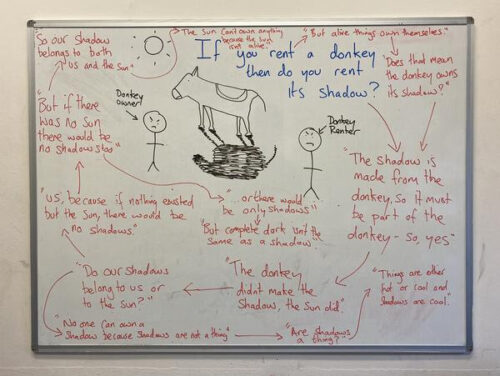 "So our shadow
belongs to both
us and the Sun"
"The Sun can't own anything
because the Sun
isn't alive."
"But alive things own themselves."
If you rent a donkey
then do you rent
its shadow?
"Does that mean
the donkey owns
its shadow?"
"But if there
was no Sun
there would be
no shadows too"
Donkey owner
Donkey
Renter
"The shadow is
made from the
donkey, so it must
be part of the
donkey - so, yes"
"Us, because if nothing existed
but the Sun, there would be
no shadows."
"...or there would
be only shadows"
"But complete dark isn't the
same as a shadow."
"Do our shadows
belong to us or
to the sun?"
"The donkey
didn't make the
shadow, the Sun did."
"Things are either
hot or cool and
shadows are cool."
"No one can own a
shadow because shadows are not a thing"
"Are shadows
a thing?"